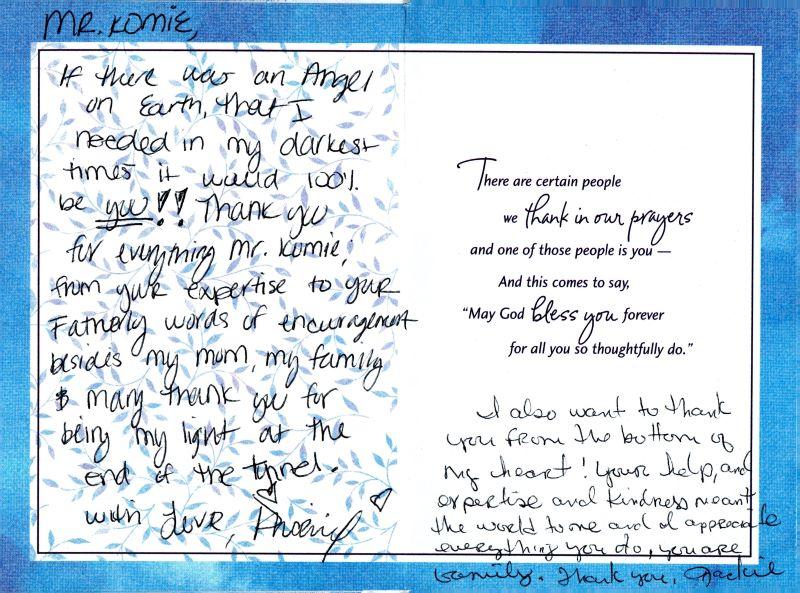 MR. KOMIE,
If there was an Angel
on Earth, that I
needed in my darkest
times it would 100%
be you!! Thank you
for everything Mr. Komie,
from your expertise to your
Fatherly words of encouragement
besides my mom, my family
& many thank you for
being my light at the
end of the tunnel.
with Love, Phoenix
There are certain people
we thank in our prayers
and one of those people is you —
And this comes to say,
“May God bless you forever
for all you so thoughtfully do.”
I also want to thank
you from the bottom of
my heart! Your help, and
expertise and kindness meant
the world to me and I appreciate
everything you do, you are
family. Thank you, Jackie